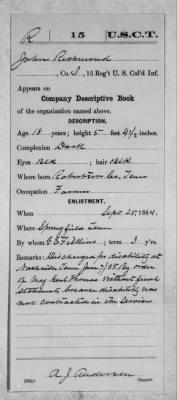 R 15 U.S.C.T.
John Richmond
, Co. I, 15 Reg't U. S. Col'd Inf.
Appears on
Company Descriptive Book
of the organization named above.
DESCRIPTION.
Age 18 years; height 5 feet 4 1/2 inches.
Complexion Dark
Eyes Blk; hair Blk
Where born Robertson Co. Tenn
Occupation Farmer
ENLISTMENT.
When Sept. 25, 1864.
Where Springfield Tenn
By whom ; term 3 y'rs.
Remarks: Discharged for disability at
Nashville Tenn June 7/65 By order
of Maj Genl Thomas without final
statements because disability was
not contracted in the service
A. J. Anderson
Copyist.